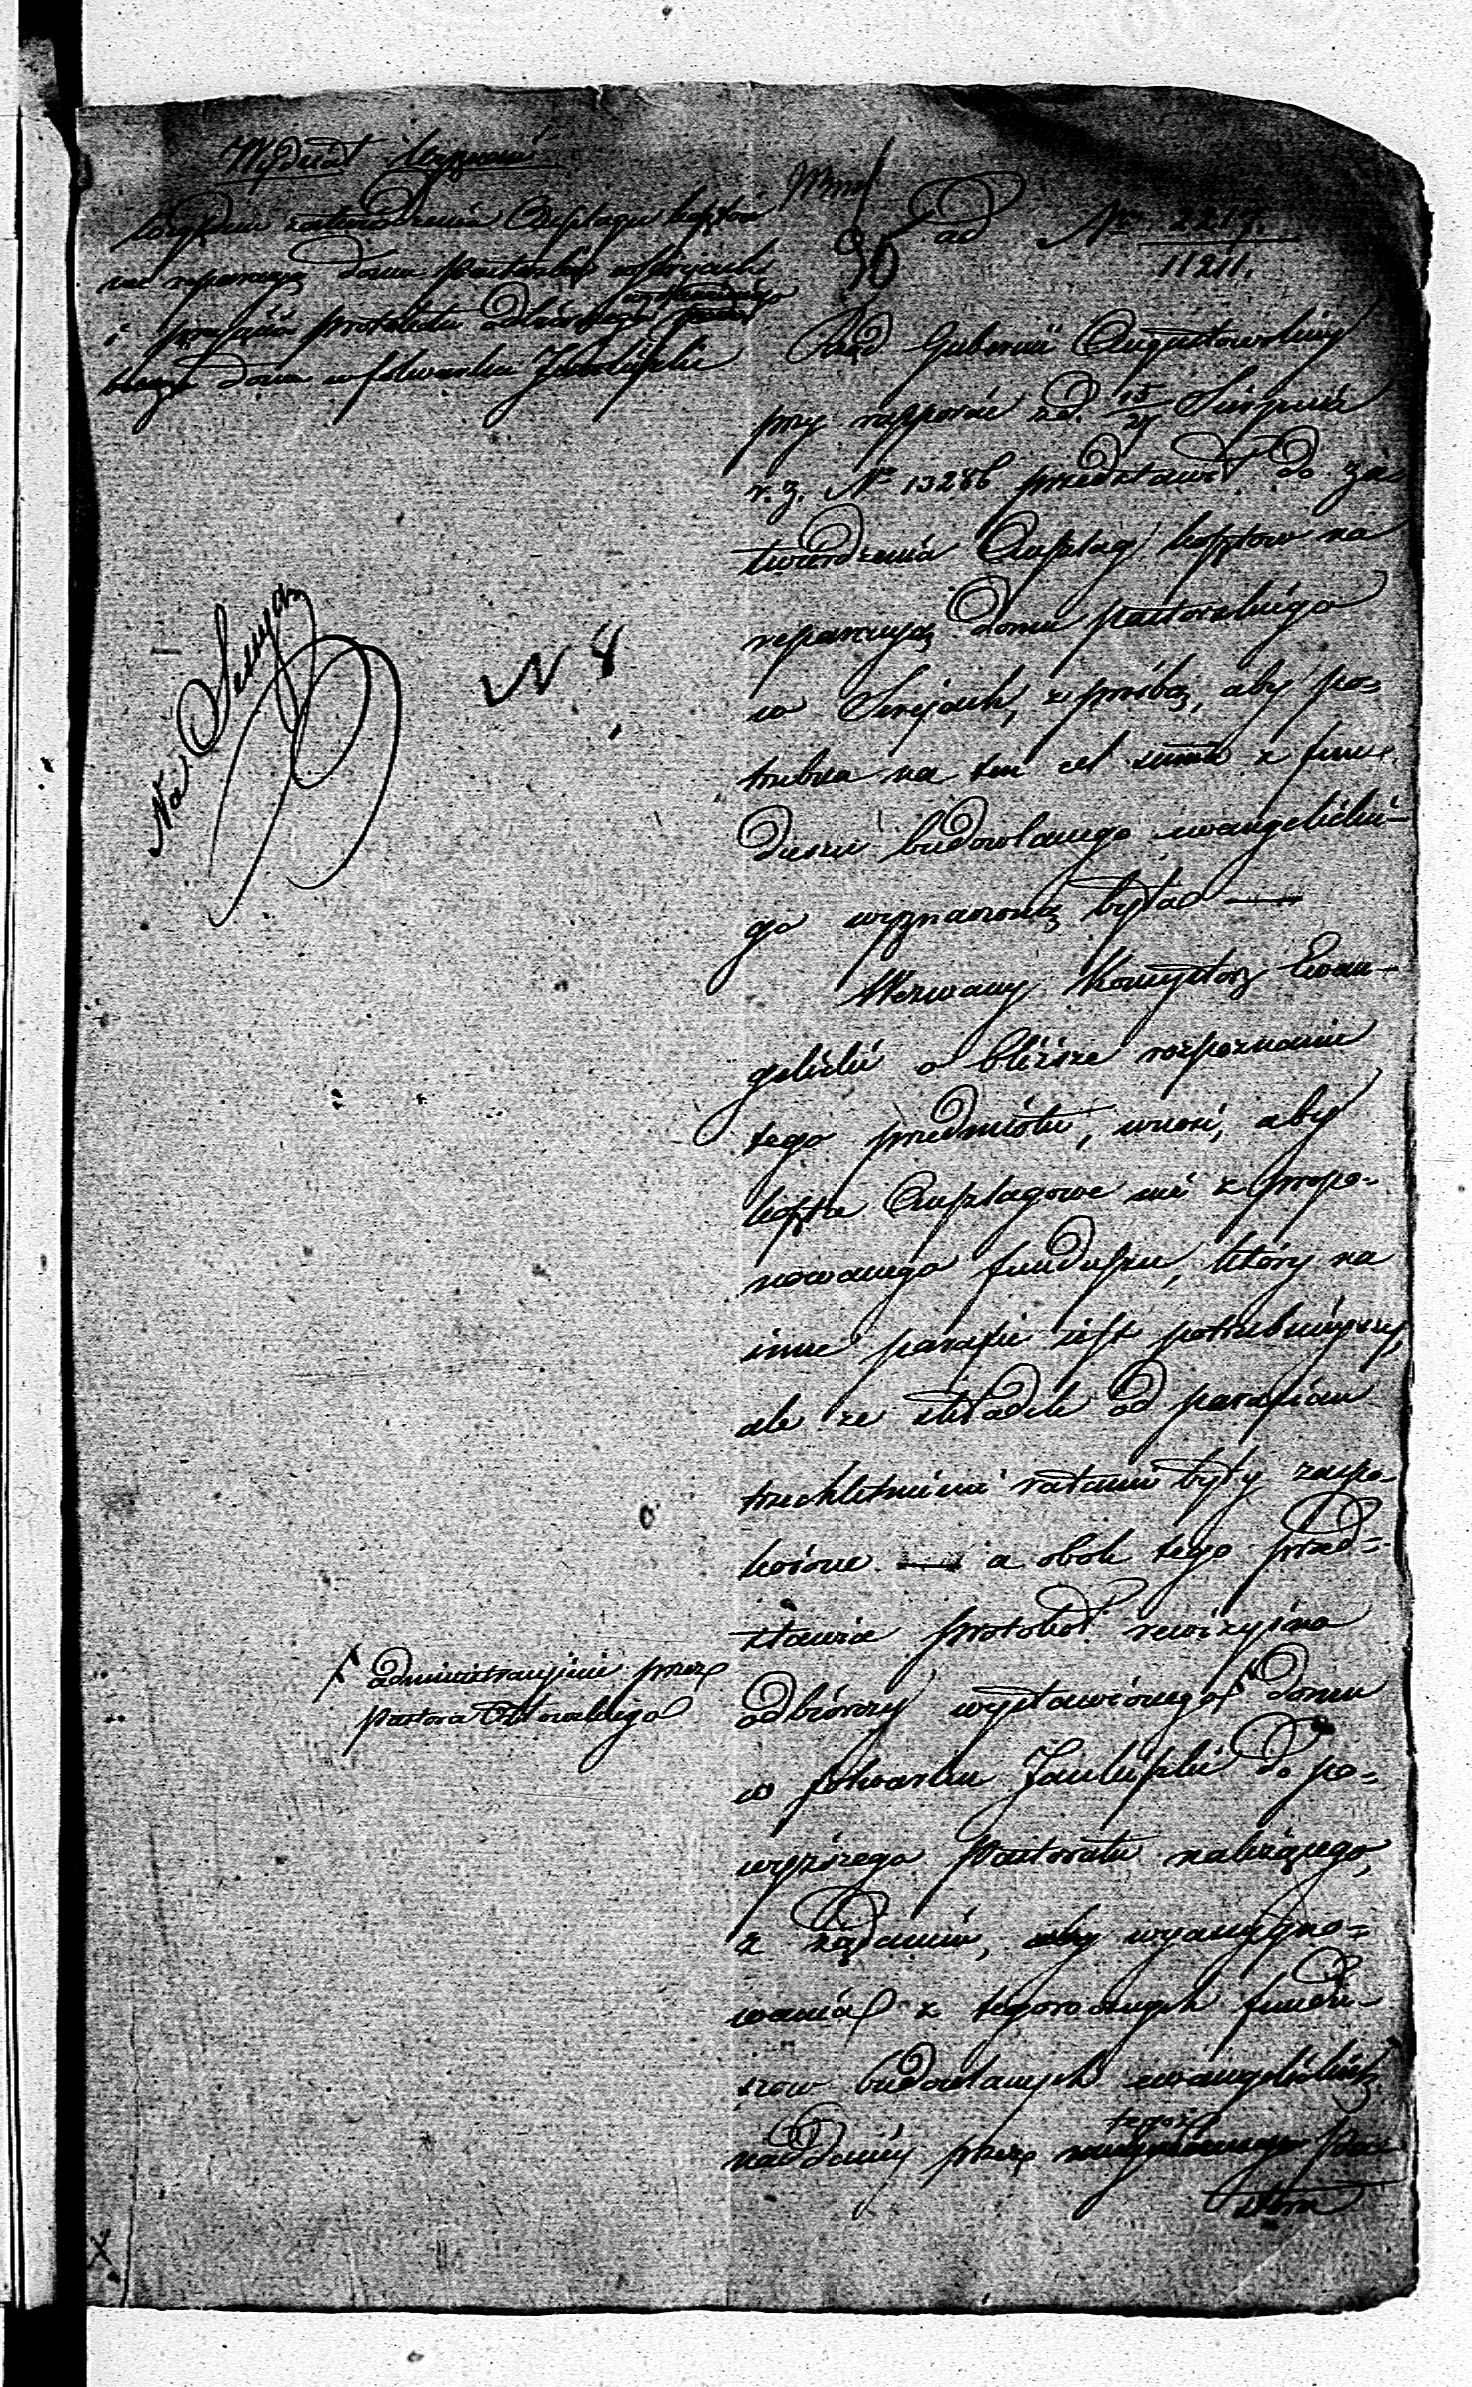 Wydział Wyznań
względem zatwierdzenia Anszlagu kosztów
na reparacyą domu Pastorskiego w Serejach
i przyjęcia protokółu odbiorczego
domu w folwarku Jankiszki
ad Nr 2219.
11211.
90
Rząd Gubernii Augustowskiej
przy rapporcie z d. 15/27 Sierpnia
r. z. Nr 13286 przedstawił do za-
twierdzenia Anszlag kosztow na
reparacyą domu pastorskiego
w Serejach, z prośbą, aby po-
trzebna na ten cel summa z fun-
duszu budowlanego ewangelickie-
go wyznaczoną była —
Wezwany Konsystorz Ewan-
gelicki o bliższe rozpoznanie
tego przedmiotu, wnosi, aby
koszta Anszlagowe nie z propo-
nowanego funduszu, który na
inne parafie jest potrzebniejszy,
ale ze składek od parafian
trzechletniemi ratami były zaspo-
kojone — a obok tego przed-
stawia protokół rewizyjno
odbiorczy wystawionego domu
w folwarku Jankiszki do po-
wyższego Pastoratu należącego,
z żądaniem, aby wyassygno-
wania z tegorocznych fundu-
szow budowlanych ewangelickich
naddaniey przez tegoż Pa-
stora
Na Sessyą
N 8
administracyjnie przez
pastora